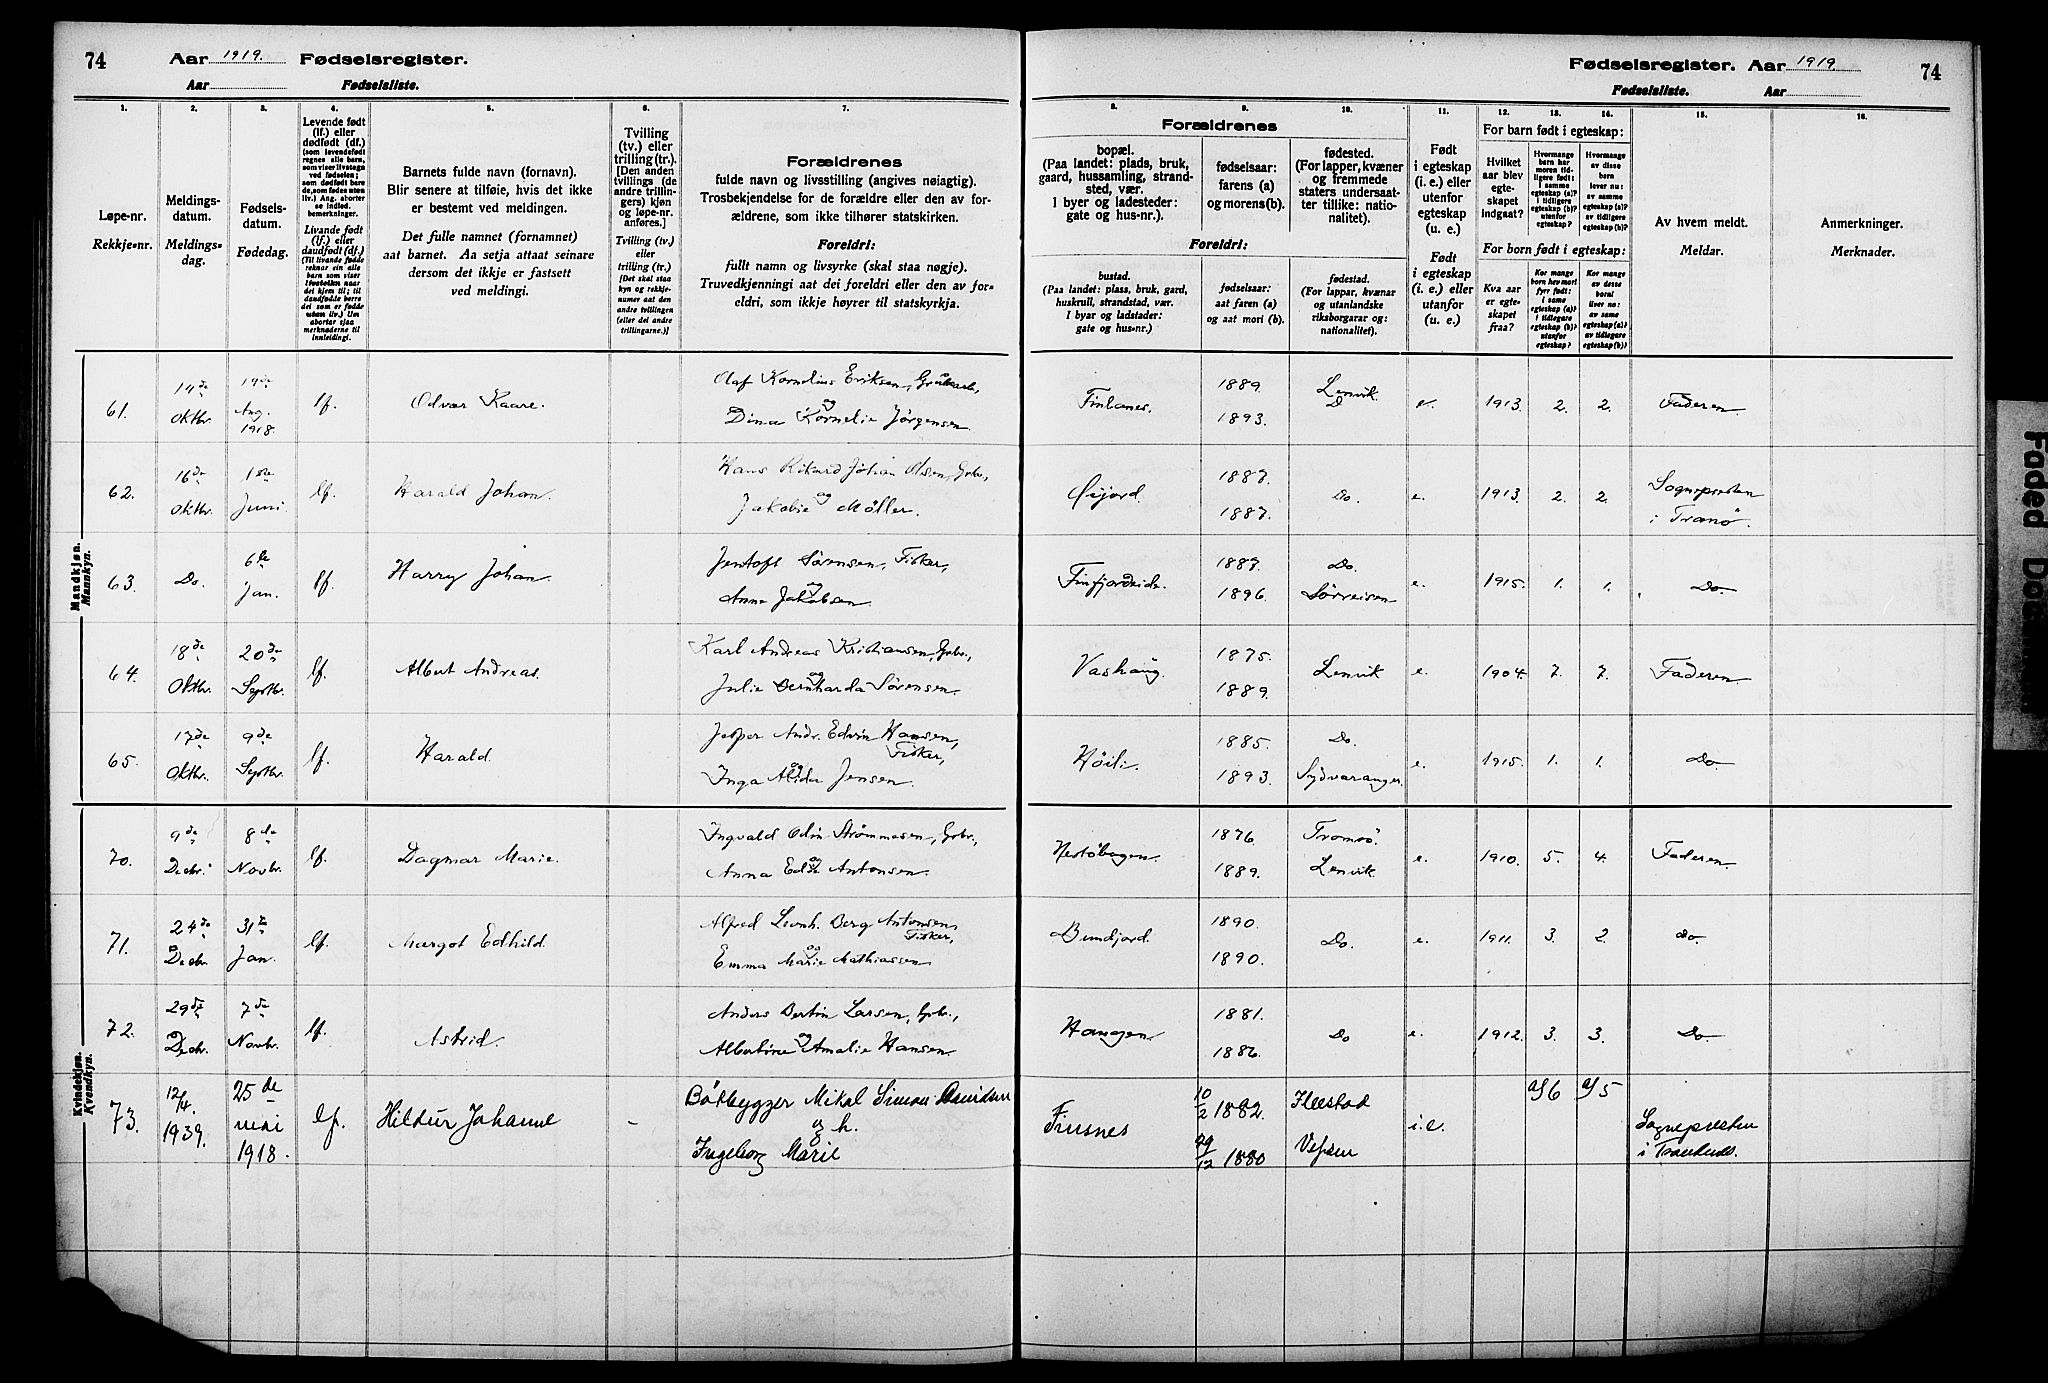 74
Aar 1919. Fødselsregister.
Aar Fødselsliste.
Fødselsregister. Aar 1919
74
Fødselsliste. Aar
1.
2.
3.
4.
5.
6.
7.
8.
9.
10.
11.
12.
13.
14.
15.
16.
Løpe-nr.
Rekkje-nr.
Meldings-
datum.
Meldings-
dag.
Fødsels-
datum.
Fødedag.
Levende født
(lf.) eller
dødfødt (df.)
Livande født
(lf.) eller
daudfødt (df.)
Barnets fulde navn (fornavn).
Blir senere at tilføie, hvis det ikke
er bestemt ved meldingen.
Det fulle namnet (fornamnet)
aat barnet. Aa setja attaat seinare
dersom det ikkje er fastsett
ved meldingi.
Tvilling
(tv.) eller
trilling (tr.).
[Den anden
tvillings (de
andre trillin-
gers) kjøn
og løpe-nr.
anføres.]
Tvilling (tv.)
eller
trilling (tr.)
[Det skal staa
kyn og rekkje-
numer aat den
andre tvillingen
(eller dei andre
trillingarne.)]
Forældrenes
fulde navn og livsstilling (angives nøiagtig).
Trosbekjendelse for de forældre eller den av for-
ældrene, som ikke tilhører statskirken.
Foreldri:
fullt namn og livsyrke (skal staa nøgje).
Truvedkjenningi aat dei foreldri eller den av for-
eldri, som ikkje høyrer til statskyrkja.
Forældrenes
bopæl.
(Paa landet: plads, bruk,
gaard, hussamling, strand-
sted, vær.
I byer og ladesteder:
gate og hus-nr.).
fødselsaar:
farens (a)
og morens (b).
fødested.
(For lapper, kvæner
og fremmede
staters undersaat-
ter tillike: natio-
nalitet).
Foreldri:
bustad.
(Paa landet: plass, bruk, gard,
huskrull, strandstad, vær.
I byar og ladstader:
gate og hus-nr.)
fødselsaar:
aat faren (a)
og aat mori (b).
fødestad.
(For lappar, kvænar
og utanlandske
riksborgarar og:
nationalitet).
Født
i egteskap
(i. e.) eller
utenfor
egteskap
(u. e.)
Født
i egteskap
(i. e.) eller
utanfor
egteskap
(u. e.)
For barn født i egteskap:
Hvilket
aar blev
egte-
skapet
indgaat?
Hvormange
barn har
moren tid-
ligere født:
i samme
egteskap (a)?
i tidligere
egteskap (b)?
utenfor
egteskap?
Hvormange
av disse
barn
lever nu:
av samme
egteskap (a)?
av tidligere
egteskap (b)?
For born født i egteskap:
Kva aar
er egte-
skapet
fraa?
Kor mange
born hev mori
fyrr født:
i same
egteskap (a)?
i tidlegare
egteskap (b)?
utanfor
egteskap?
Kor mange
av desse
borni
liver nu:
av same
egteskap (a)?
av tidlegare
egteskap (b)?
Av hvem meldt.
Meldar.
Anmerkninger.
Merknader.
Mandkjøn.
Mannkyn.
61. 14de Oktbr. 19de Aug. 1918. lf. Odvar Kaare.
Olaf Kornelius Eriksen,
og
Dina Kornelie Jørgensen
Finlanes. 1889. 1893. Lenvik Do e. 1913. 2. 2. Faderen
62. 16de Oktbr. 1ste Juni. lf. Harald Johan.
Hans Rikard Johan Olsen, Gbr.,
og
Jakobie Møller.
1887. 1887. Do. e. 1913. 2. 2. Sognepresten
i Tranö.
63. Do. 6te Jan. lf. Harry Johan.
Jentoft Sørensen, Fisker,
og
Anna Jakobsen.
Finfjordeide. 1887. 1896. Do. Sörreisen e. 1915. 1. 1. Do.
64. 18de Oktbr. 20de Septbr. lf. Albert Andreas.
Karl Andreas Kristiansen, Gbr.,
og
Julie Bernharda Sørensen.
Vashaug. 1875. 1889. Lenvik e. 1904. 7. 7. Faderen.
65. 17de Oktbr. 9de Septbr. lf. Harald.
Jesper Andr. Edvin Hansen,
Fisker,
og
Inga Alida Jensen.
Höili. 1885. 1893. Do. Sydvaranger e. 1915. 1. 1. Do.
Kvindekjøn.
Kvendkyn.
70. 9de Decbr. 8de Novbr. lf. Dagmar Marie.
Ingvald Odin Strømmesen, Gbr.,
og
Anna Antonsen.
1876. 1889. Tromsö. Lenvik. e. 1910. 5. 4. Faderen
71. 24de Decbr. 31te Jan. lf. Margot Edhild.
Alfred Leonh. Berg Antonsen,
Fisker,
og
Emma Marie Mathiassen
Bundjord. 1890. 1890. Do. e. 1911. 3. 2. Do.
72. 29de Decbr. 7de Novbr. lf. Astrid.
Anders Bertin Larsen, Gbr.,
og
Albertine Amalie Hansen.
Haugen. 1881. 1886. Do e. 1912. 3. 3. Do.
73. 12/4. 1939. 25de mai 1918. lf. Hildur Johanne -
Båtbygger Mikal Simon Davidsen
og h.
Ingeborg Marie
Finsnes 10/2 1882. 29/12 1880 Vefsen i.e. a/6 a/5 Sognepresten
i
Faded Document